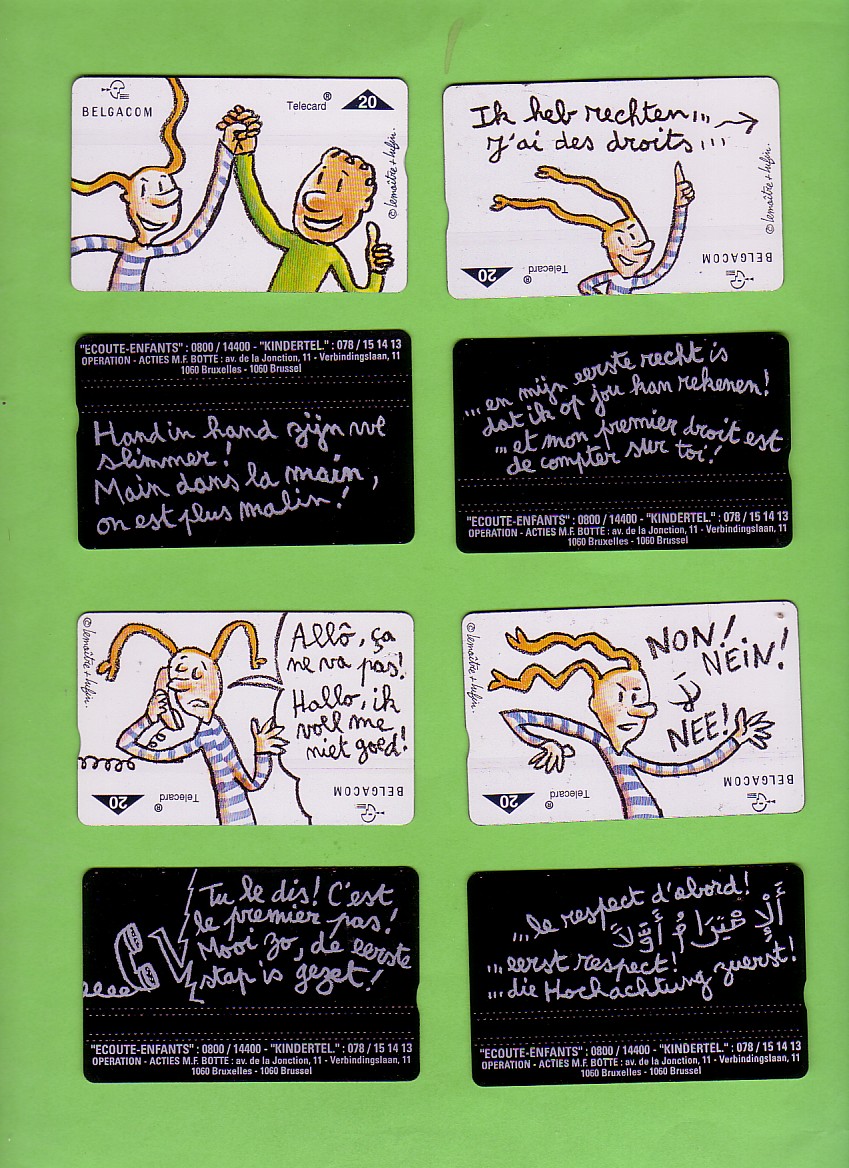 BELGACOM
Telecard® 20
© lemaître + lufin.
Ik heb rechten...
J'ai des droits...
© lemaître + lufin.
20 Telecard®
BELGACOM
"ECOUTE-ENFANTS" : 0800 / 14400 - "KINDERTEL." : 078 / 15 14 13
OPERATION - ACTIES M.F. BOTTE : av. de la Jonction, 11 - Verbindingslaan, 11
1060 Bruxelles - 1060 Brussel
Hand in hand zijn we
slimmer!
Main dans la main,
on est plus malin!
...en mijn eerste recht is
dat ik op jou kan rekenen!
...et mon premier droit est
de compter sur toi!
"ECOUTE-ENFANTS" : 0800 / 14400 - "KINDERTEL." : 078 / 15 14 13
OPERATION - ACTIES M.F. BOTTE : av. de la Jonction, 11 - Verbindingslaan, 11
1060 Bruxelles - 1060 Brussel
© lemaître + lufin.
Allô, ça
ne va pas!
Hallo, ik
voel me
niet goed!
20 Telecard®
BELGACOM
© lemaître + lufin.
NON!
NEIN!
لا
NEE!
20 Telecard®
BELGACOM
Tu le dis! C'est
le premier pas!
Mooi zo, de eerste
stap is gezet!
"ECOUTE-ENFANTS" : 0800 / 14400 - "KINDERTEL." : 078 / 15 14 13
OPERATION - ACTIES M.F. BOTTE : av. de la Jonction, 11 - Verbindingslaan, 11
1060 Bruxelles - 1060 Brussel
...le respect d'abord!
أَلْإِحْتِرَامُ أَوَّلاً
...eerst respect!
...die Hochachtung zuerst!
"ECOUTE-ENFANTS" : 0800 / 14400 - "KINDERTEL." : 078 / 15 14 13
OPERATION - ACTIES M.F. BOTTE : av. de la Jonction, 11 - Verbindingslaan, 11
1060 Bruxelles - 1060 Brussel